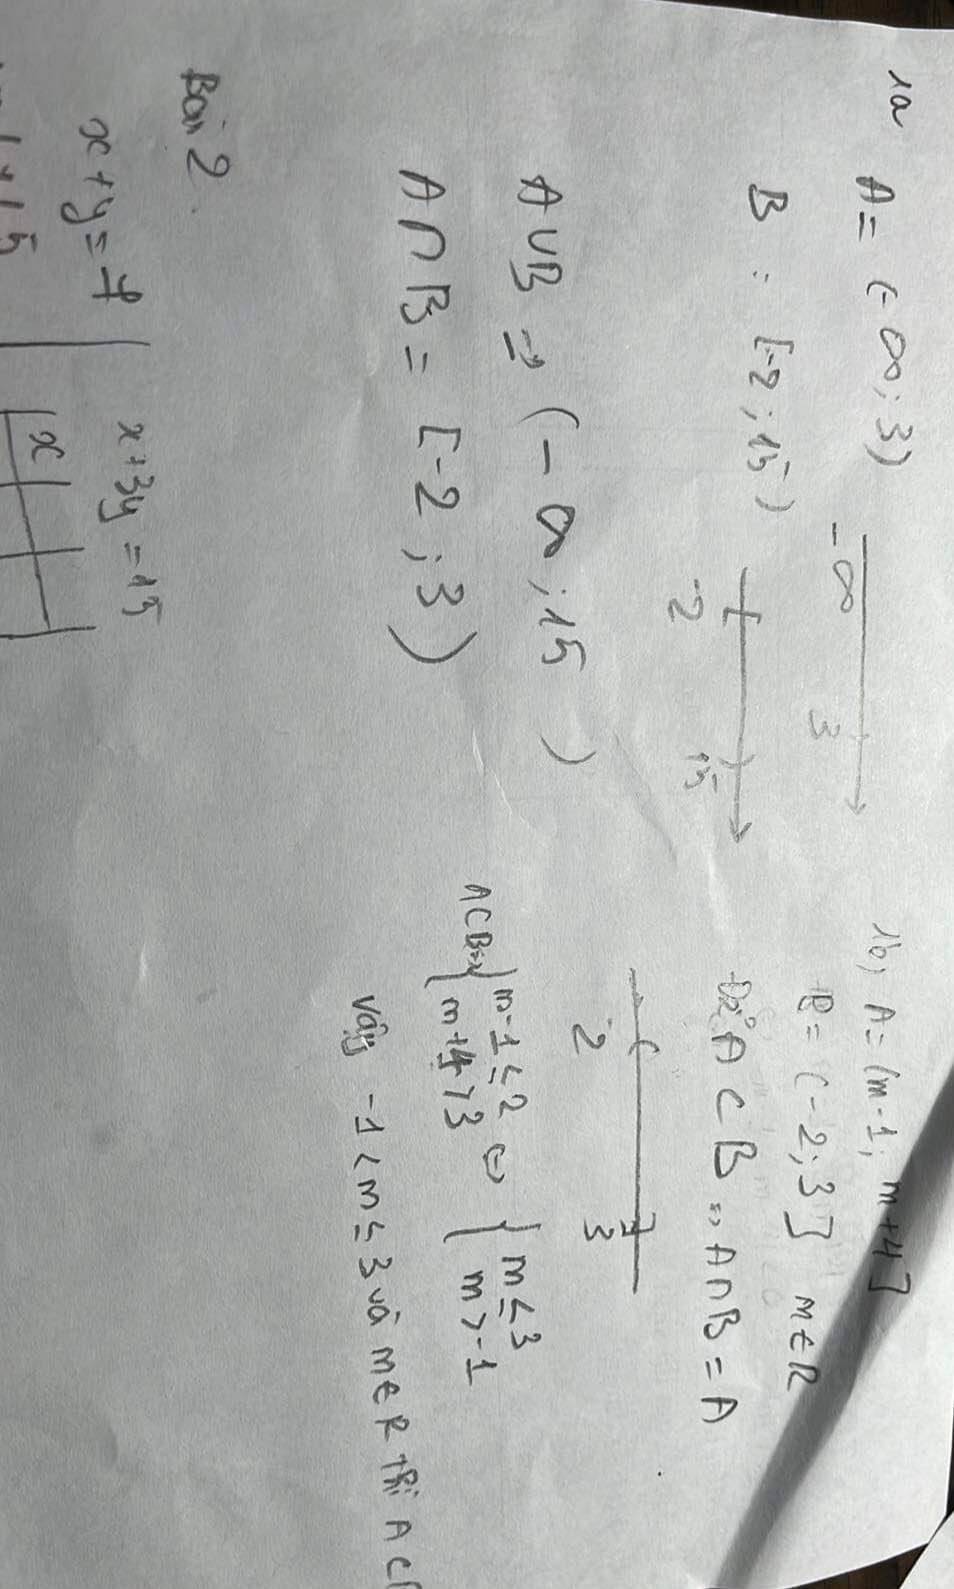 1a A = (-∞; 3)
-∞ 3
B : [-2; 15)
-2 15
A∪B => (-∞; 15)
A∩B = [-2; 3)
1b, A = (m-1; m+4]
B = (-2; 3] m∈R
Để A⊂B => A∩B = A
-2 3
A⊂B => { m-1≤2 ⇔ { m≤3
m+4>3 m>-1
Vậy -1<m≤3 và m∈R thì A⊂
Bài 2.
x+y=-4 | x+3y=15
x